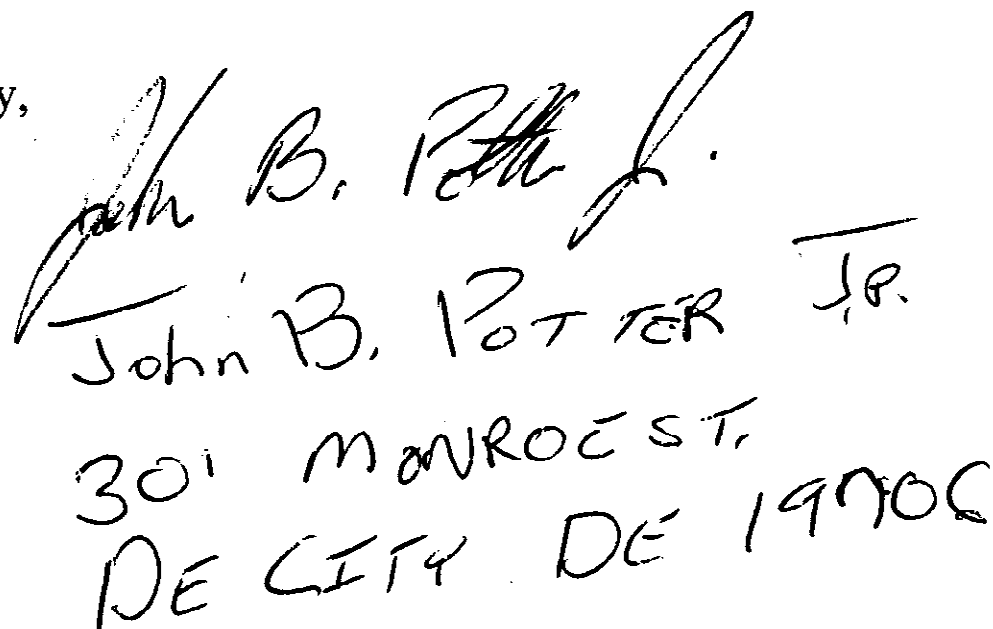 y,
John B. Potter Jr.
John B. POTTER J.R.
301 MONROE ST.
DE CITY DE 19706